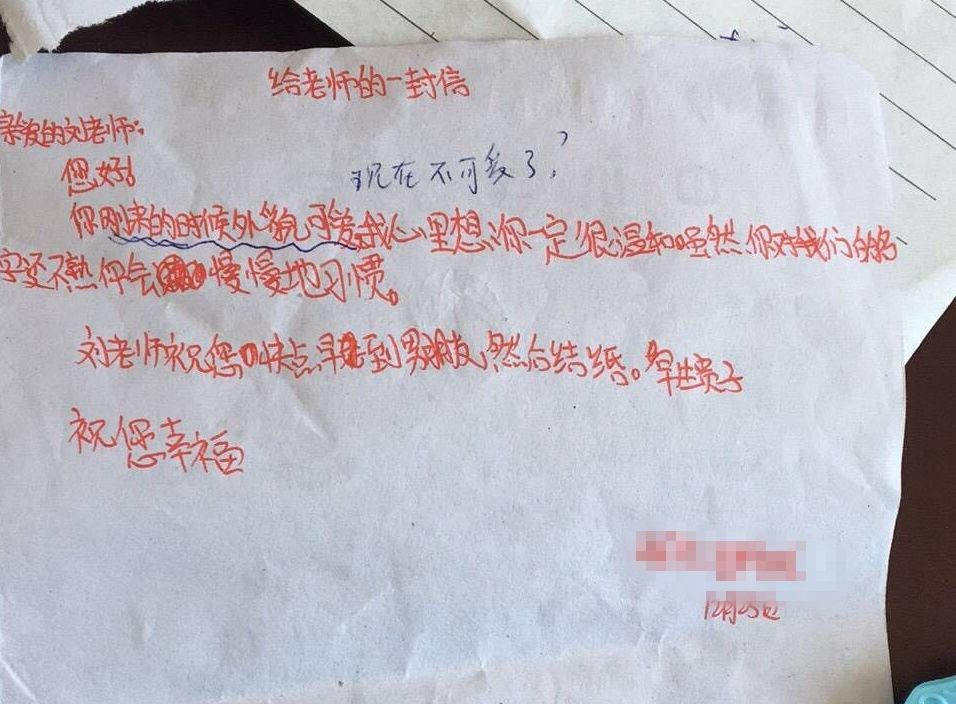 给老师的一封信
亲爱的刘老师:
您好!
现在不可爱了?
你刚来的时候外貌可爱我心里想你一定很温和虽然你对我们的名
字还不熟你会慢慢地习惯。
刘老师祝您快点早找到男朋友,然后结婚。早生贵子
祝您幸福
12月25日